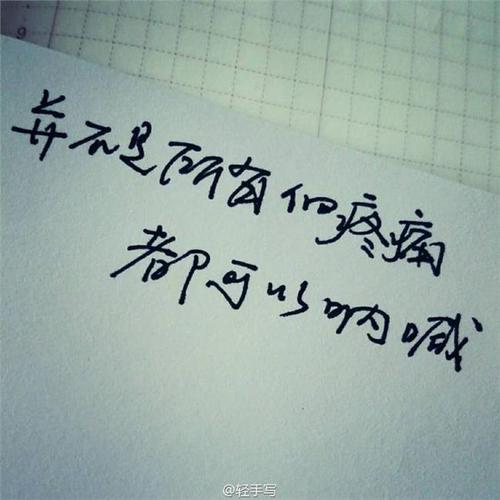 并不是所有的疼痛
都可以呐喊
@轻手写